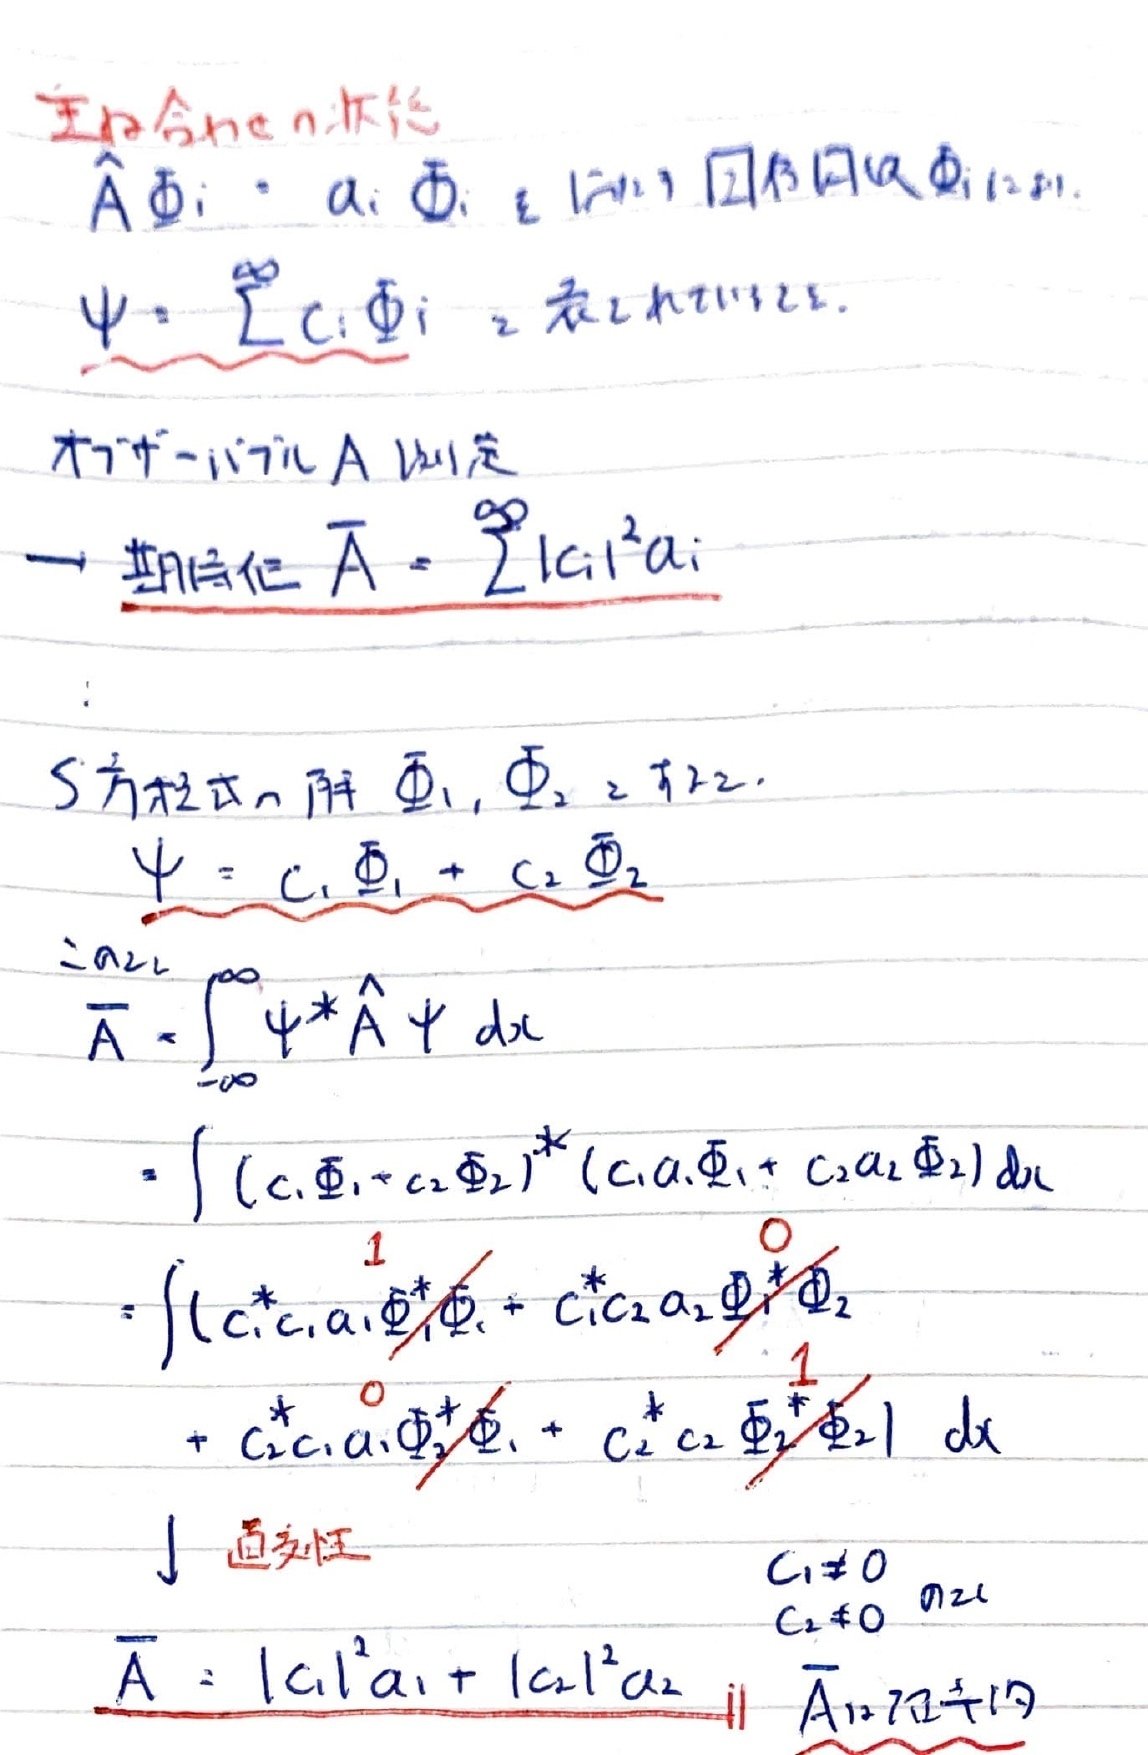 重ね合わせの状態
Â Φi = ai Φi を 固有関数 Φi により.
ψ = ∑^∞ ci Φi と表されているとき.
オブザーバブル A 測定
→ 期待値 A̅ = ∑^∞ |ci|² ai
:
S方程式の解 Φ₁, Φ₂ とすると.
ψ = c₁ Φ₁ + c₂ Φ₂
このとき
A̅ = ∫_{-∞}^{∞} ψ* Â ψ dx
= ∫ (c₁Φ₁ + c₂Φ₂)* (c₁a₁Φ₁ + c₂a₂Φ₂) dx
1 0
= ∫ (c₁*c₁a₁Φ₁*Φ₁ + c₁*c₂a₂Φ₁*Φ₂
0 1
+ c₂*c₁a₁Φ₂*Φ₁ + c₂*c₂Φ₂*Φ₂) dx
↓ 直交性
c₁ ≠ 0
c₂ ≠ 0 のとき
A̅ = |c₁|²a₁ + |c₂|²a₂
A̅は